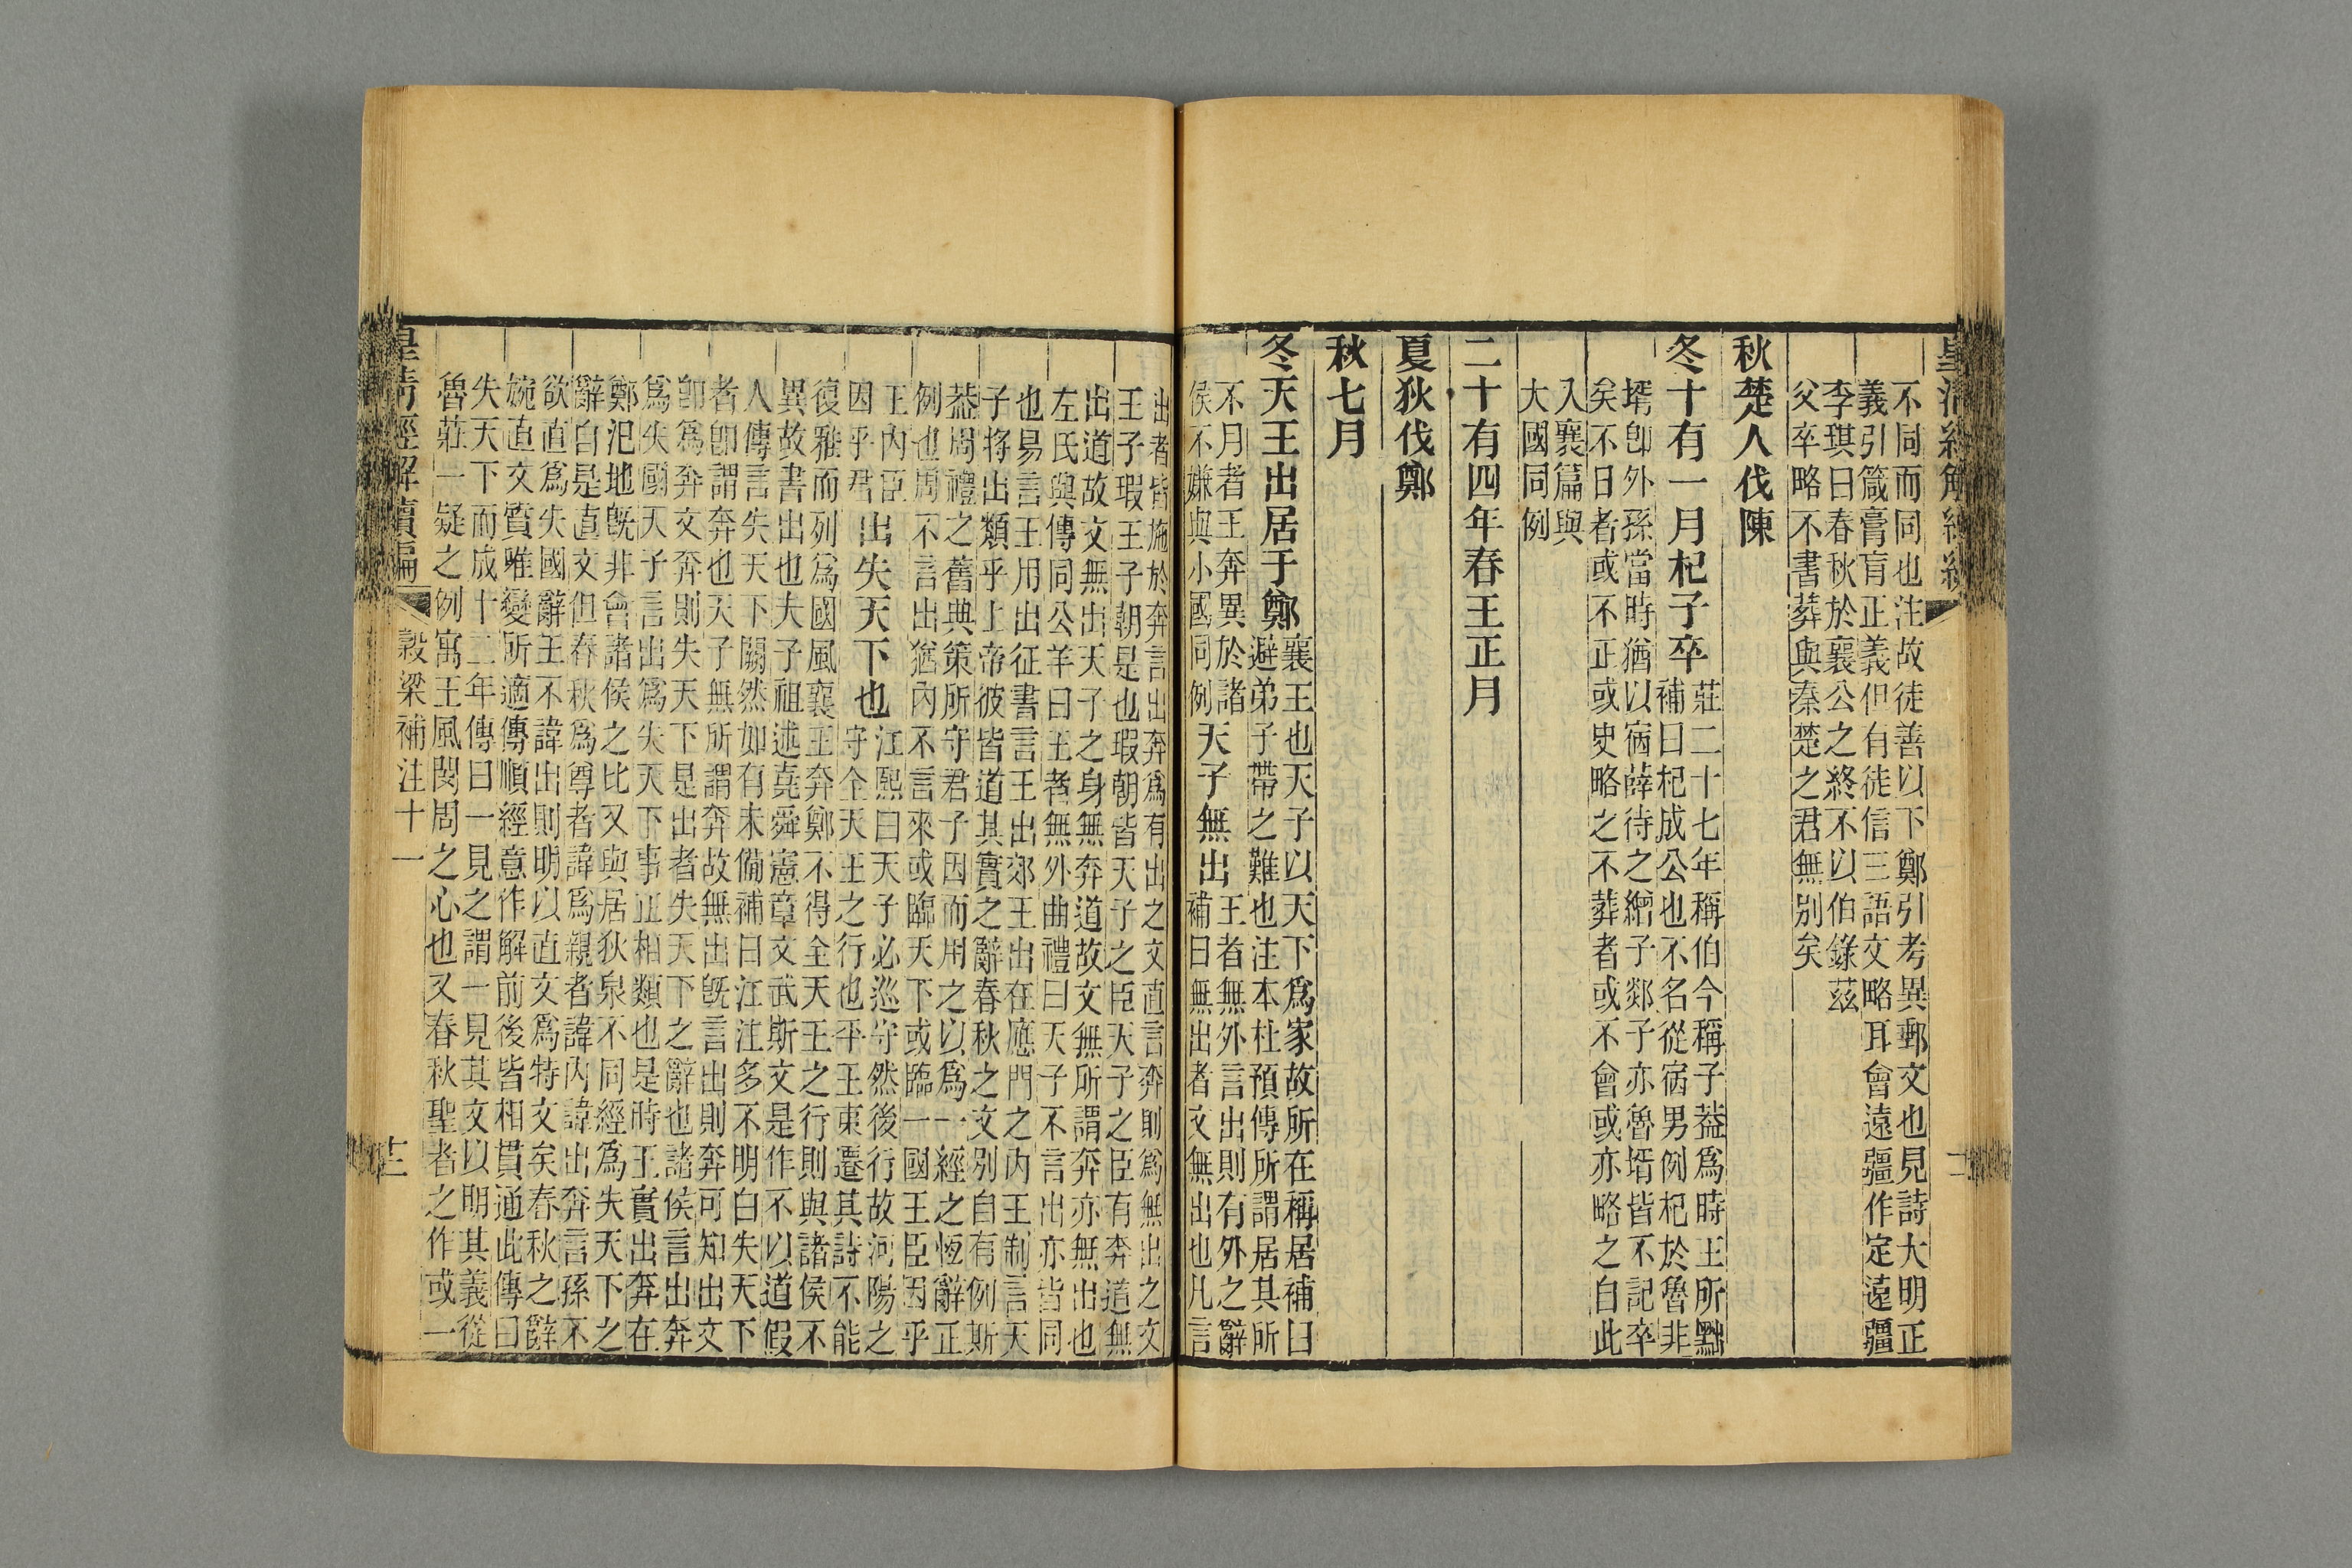 皇清經解續編
不同而同也注故徒善以下鄭引考異郵文也見詩大明正
義引箴膏肓正義但有徒信三語文略耳會遠疆作定遠疆
李琪曰春秋於襄公之終不以伯錄茲
父卒略不書葬與秦楚之君無別矣
秋楚人伐陳
冬十有一月杞子卒
莊二十七年稱伯今稱子葢爲時王所黜
補曰杞成公也不名從宿男例杞於魯非
壻卽外孫當時猶以宿薛待之繒子郯子亦魯壻皆不記卒
矣不日者或不正或史略之不葬者或不會或亦略之自此
入襄篇與
大國同例
二十有四年春王正月
夏狄伐鄭
秋七月
冬天王出居于鄭
襄王也天子以天下爲家故所在稱居補曰
避弟子帶之難也注本杜預傳所謂居其所
不月者王奔異於諸
侯不嫌與小國同例
天子無出
王者無外言出則有外之辭
補曰無出者文無出也凡言
出者皆施於奔言出奔爲有出之文直言奔則爲無出之文
王子瑕王子朝是也瑕朝皆天子之臣天子之臣有奔道無
出道故文無出天子之身無奔道故文無所謂奔亦無出也
左氏與傳同公羊曰王者無外曲禮曰天子不言出亦皆同
也易言王用出征書言王出郊王出在應門之內王制言天
子將出類乎上帝彼皆道其實之辭春秋之文別自有例斯
葢周禮之舊典策所守君子因而用之以爲一經之恆辭正
例也周不言出猶內不言來或臨天下或臨一國王臣因乎
王內臣
因乎君
出失天下也
江熙曰天子必巡守然後行故河陽之
守全天王之行也平王東遷其詩不能
復雅而列爲國風襄王奔鄭不得全天王之行則與諸侯不
異故書出也夫子祖述堯舜憲章文武斯文是作不以道假
人傳言失天下闕然如有未備補曰江注多不明白失天下
者卽謂奔也天子無所謂奔故無出旣言出則奔可知出文
卽爲奔文奔則失天下是出者失天下之辭也諸侯言出奔
爲失國天子言出爲失天下事正相類也是時王實出奔在
鄭氾地旣非會諸侯之比又與居狄泉不同經爲失天下之
辭自是直文但春秋爲尊者諱爲親者諱內諱出奔言孫不
欲直爲失國辭王不諱出則明以直文爲特文矣春秋之辭
婉直文質唯變所適傳順經意作解前後皆相貫通此傳曰
失天下而成十二年傳曰一見之謂一見其文以明其義從
魯莊一疑之例寓王風閔周之心也又春秋聖者之作或一
皇清經解續編
穀梁補注十一